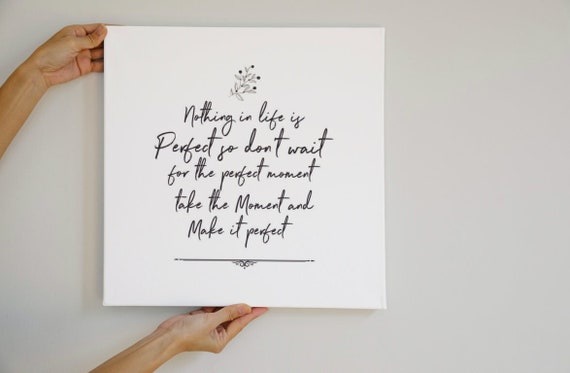 Nothing in life is
Perfect so don't wait
for the perfect moment
take the Moment and
Make it perfect